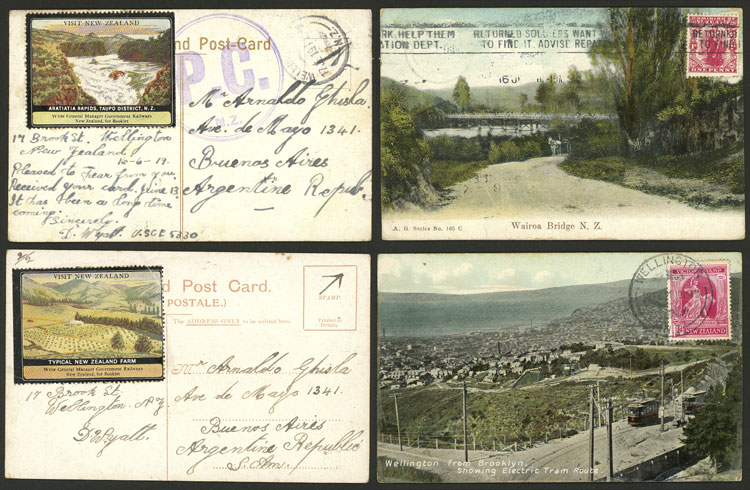 VISIT NEW ZEALAND
ARATIATIA RAPIDS, TAUPO DISTRICT, N.Z.
Write General Manager Government Railways
New Zealand, for Booklet
nd Post-Card
P.C.
N.Z.
17 Brook St. Wellington
New Zealand
10-6-19.
Pleased to hear from you.
Received your card June 13
It has been a long time
coming.
Sincerely.
D. Wyatt. U.SCE 5330
Mr Arnaldo Ghisla.
Ave. de Mayo 1341.
Buenos Aires
Argentine Repub.
RK. HELP THEM
ATION DEPT.
RETURNED SOLDIERS WANT
TO FIND IT. ADVISE REPAT
RETURNED
TO FIND
ONE PENNY
A. G. Series No. 165 C
Wairoa Bridge N. Z.
VISIT NEW ZEALAND
TYPICAL NEW ZEALAND FARM
Write General Manager Government Railways
New Zealand, for Booklet
d Post Card.
POSTALE.)
The ADDRESS ONLY to be written here.
STAMP
Printed in
17 Brook St.
Wellington
D Wyatt.
Mr Arnaldo Ghisla
Ave de Mayo 1341.
Buenos Aires
Argentine Republic
S. Am.
WELLINGTON
VICTORY
NEW ZEALAND
Wellington from Brooklyn,
Showing Electric Tram Route.